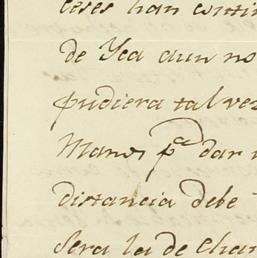 ceses han contin
de Yca aun no
pudiera tal vez
Manos pª dar
distancia debe
sera la de Chan